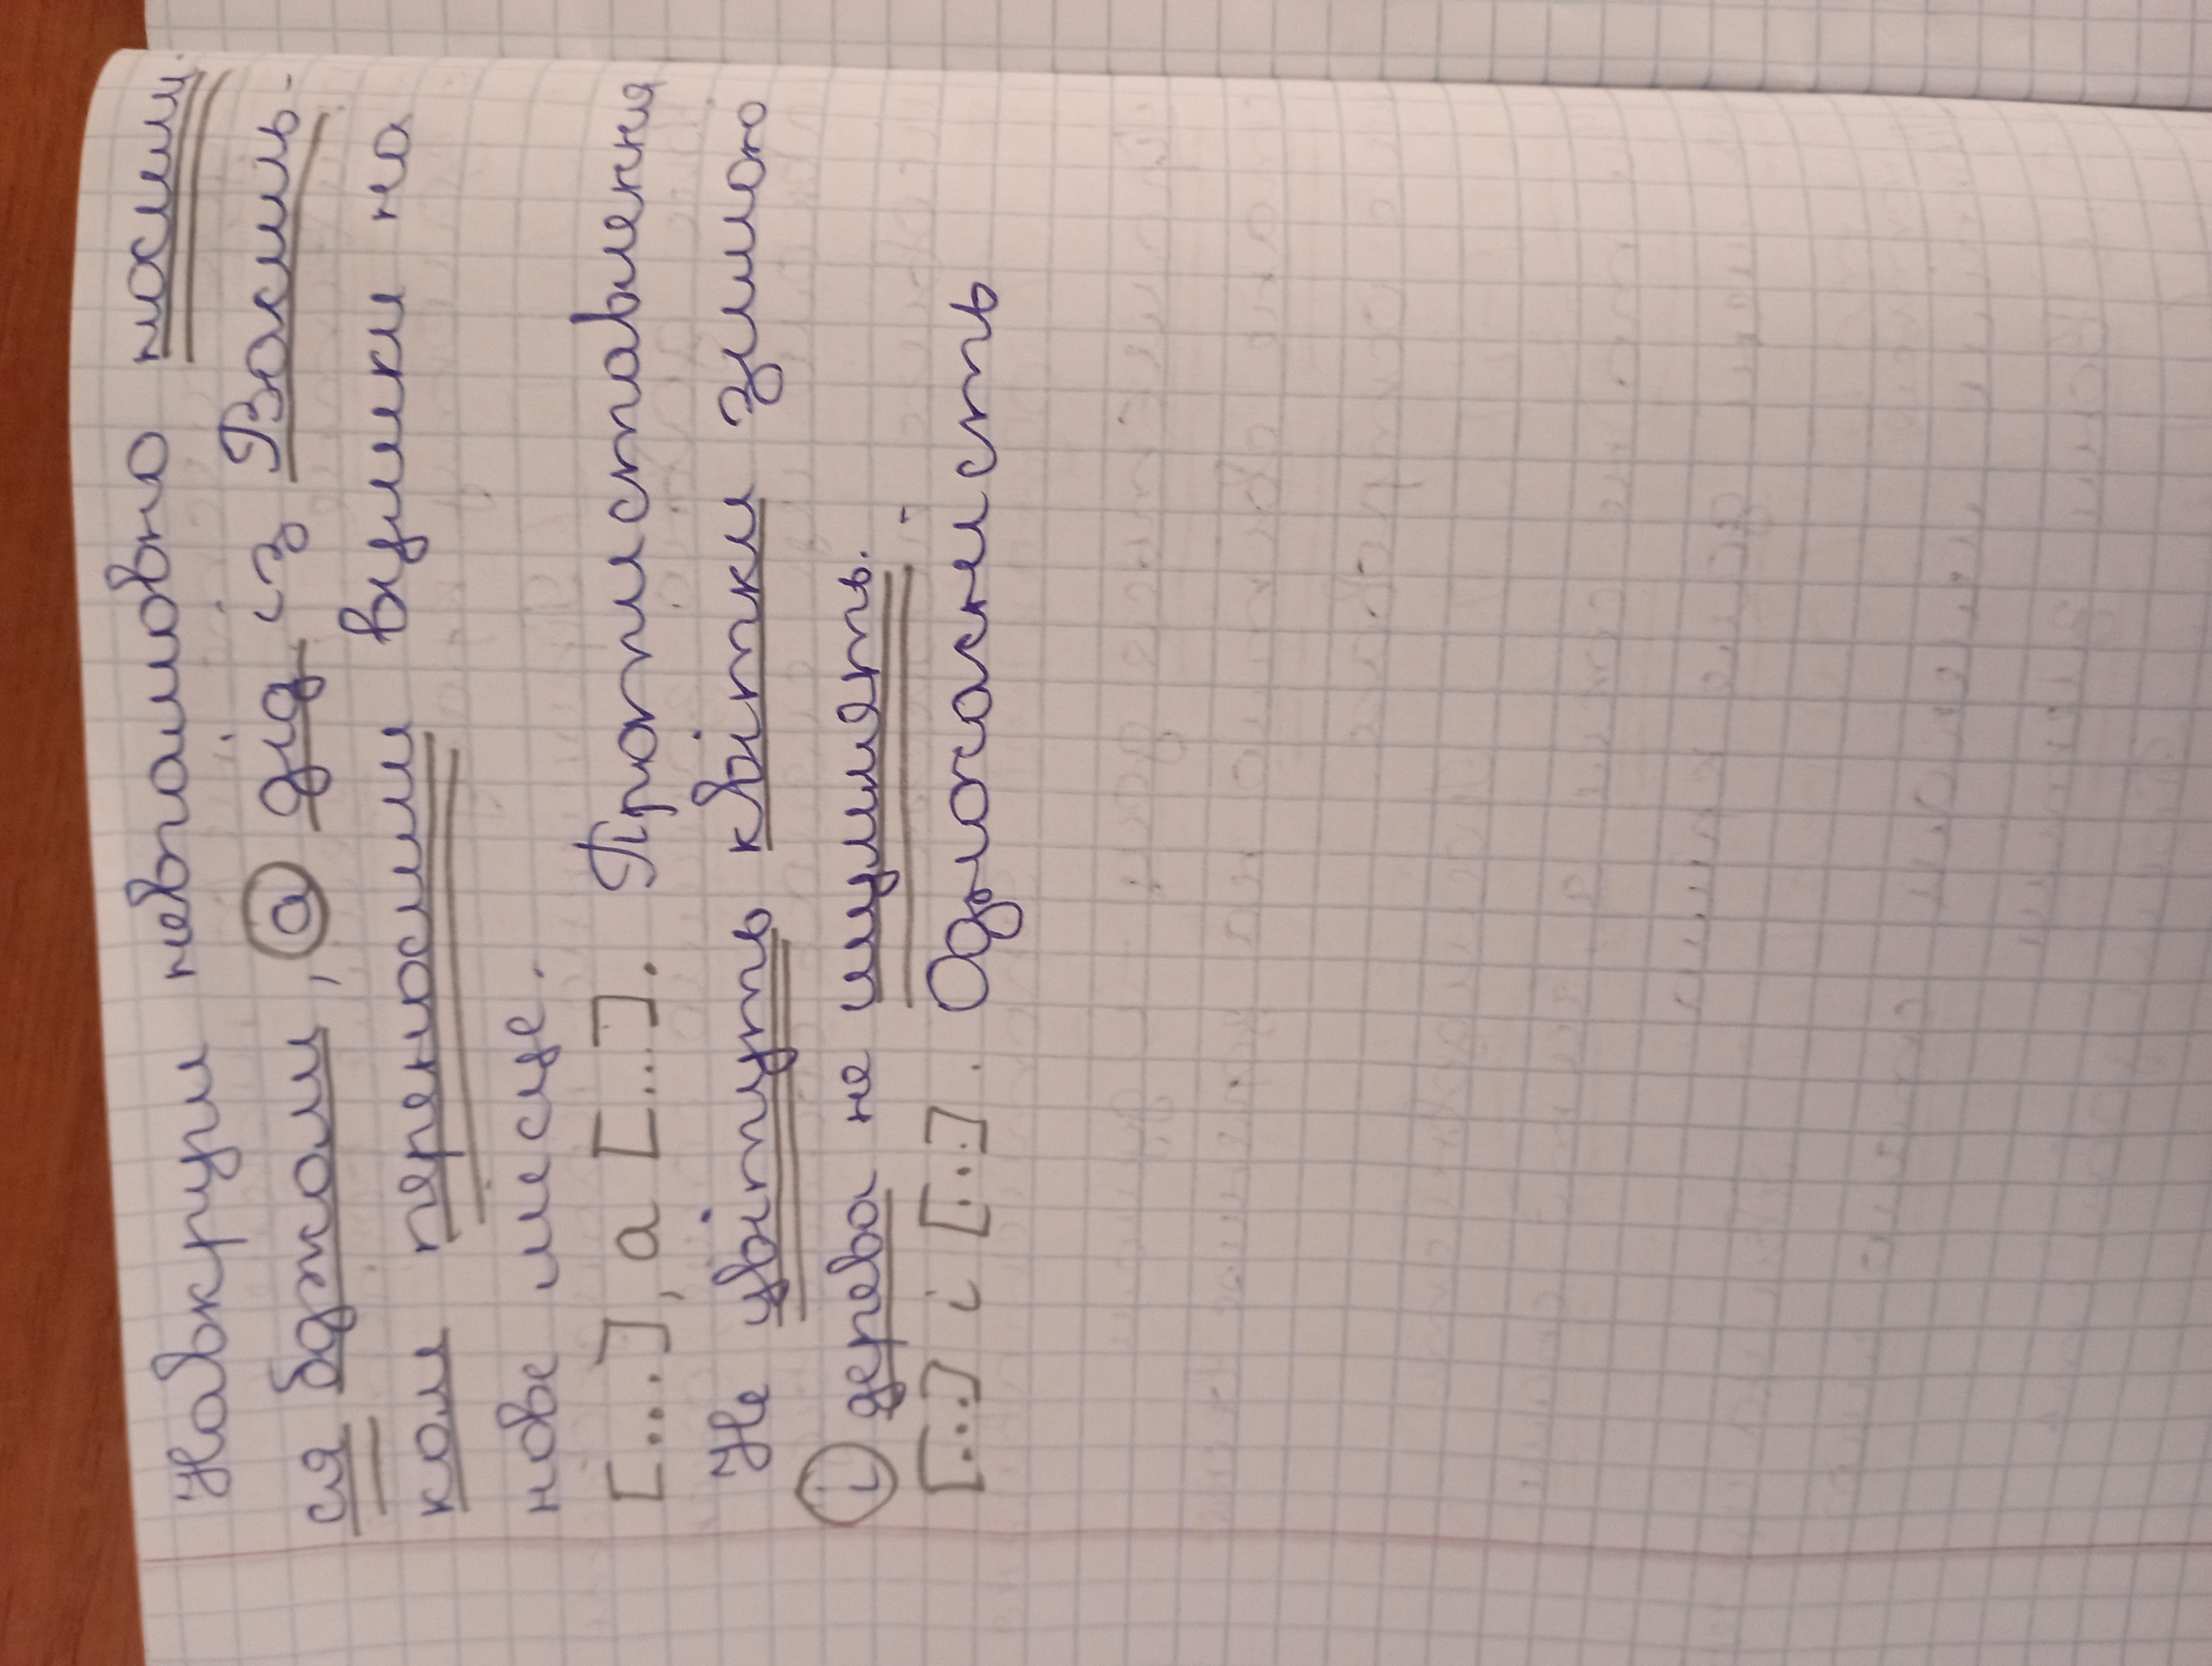 Навкруги невтомовно носили
ся бджоли, а дід із Василь-
ком переносили вулики на
нове місце.
[....], а [...]. Протиставлення
Не цвітуть квітки зимою
і дерева не шумлять.
[...] і [...]. Одночасність